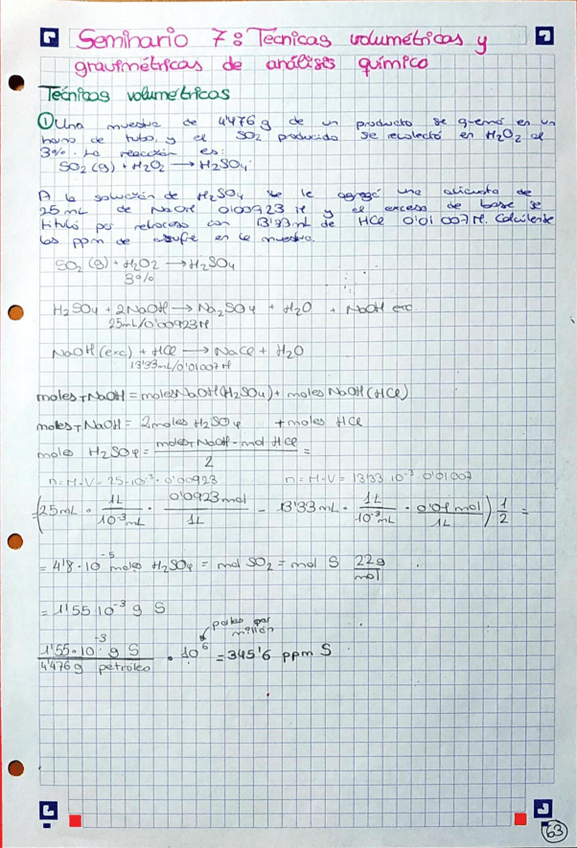 Seminario 7: Técnicas volumétricas y
gravimétricas de análisis químico
Técnicas volumétricas
① Una muestra de 4'476 g de un producto se quemó en un
horno de tubo, y el SO2 producido se recolectó en H2O2 al
3%. La reacción es:
SO2 (g) + H2O2 → H2SO4
A la solución de H2SO4 se le agregó una alícuota de
25 mL de NaOH 0'00923 M y el exceso de base se
tituló por retroceso con 13'33 mL de HCl 0'01007 M. Calcúlense
los ppm de azufre en la muestra.
SO2 (g) + H2O2 → H2SO4
3%
H2SO4 + 2NaOH → Na2SO4 + H2O + NaOH exc
25mL/0'00923M
NaOH (exc) + HCl → NaCl + H2O
13'33mL/0'01007M
moles T NaOH = moles NaOH (H2SO4) + moles NaOH (HCl)
moles T NaOH = 2 moles H2SO4 + moles HCl
moles H2SO4 = moles T NaOH - mol HCl / 2 =
n = M·V = 25·10^-3 · 0'00923 n = M·V = 13'33 10^-3 0'01007
(25mL · 1L / 10^-3 mL · 0'0923 mol / 1L - 13'33 mL · 1L / 10^-3 mL · 0'01 mol / 1L) 1/2 =
= 4'8 · 10^-5 moles H2SO4 = mol SO2 = mol S 22g / mol
= 1'55 10^-3 g S
partes por
millón
1'55 · 10^-3 g S / 4'476 g petróleo · 10^6 = 345'6 ppm S
63